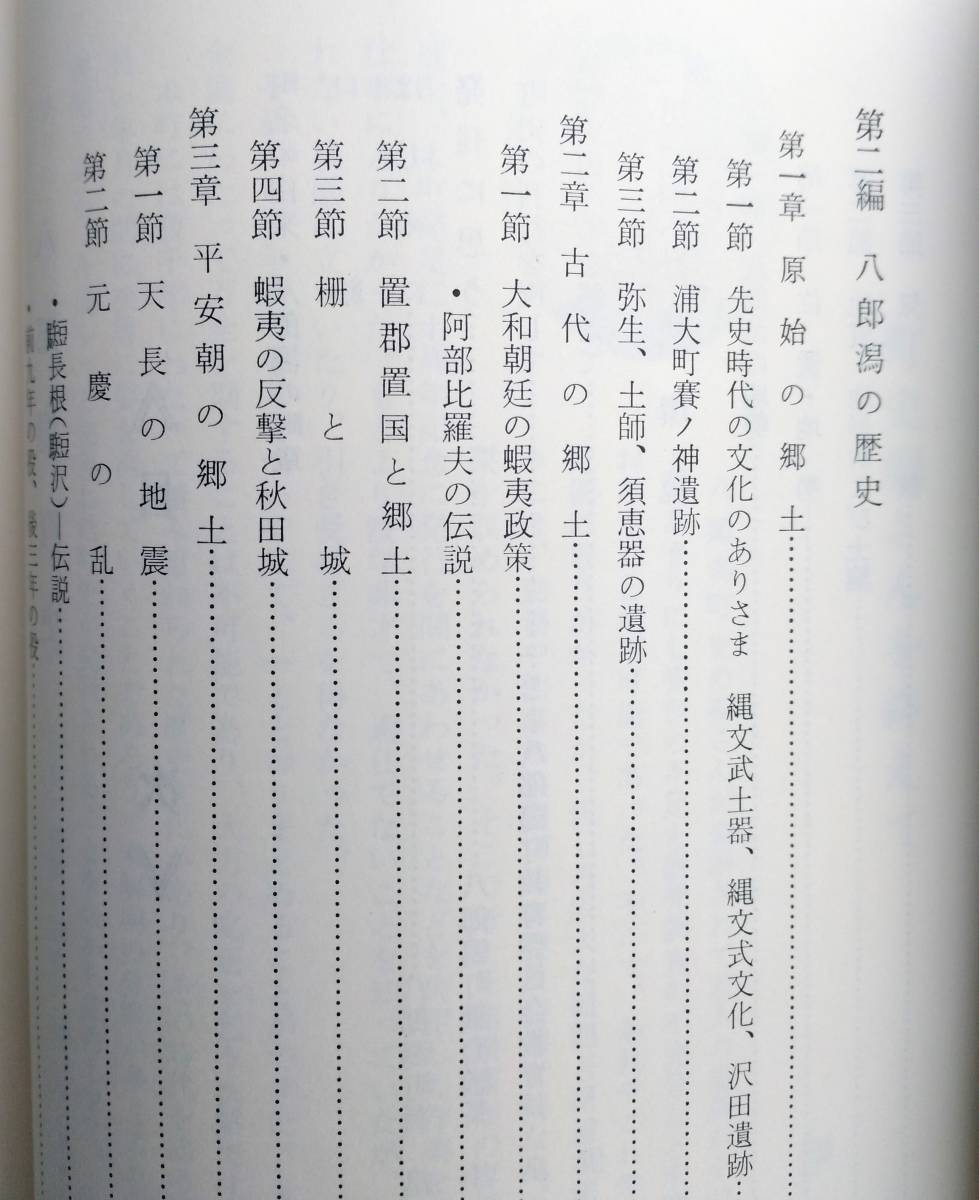 第二編　八郎潟の歴史
第一章　原始の郷土
第一節　先史時代の文化のありさま　縄文武土器、縄文式文化、沢田遺跡
第二節　浦大町賽ノ神遺跡
第三節　弥生、土師、須恵器の遺跡
第二章　古代の郷土
第一節　大和朝廷の蝦夷政策
・阿部比羅夫の伝説
第二節　置郡置国と郷土
第三節　柵と城
第四節　蝦夷の反撃と秋田城
第三章　平安朝の郷土
第一節　天長の地震
第二節　元慶の乱
長根（沢）―伝説
・前九年の役、後三年の役